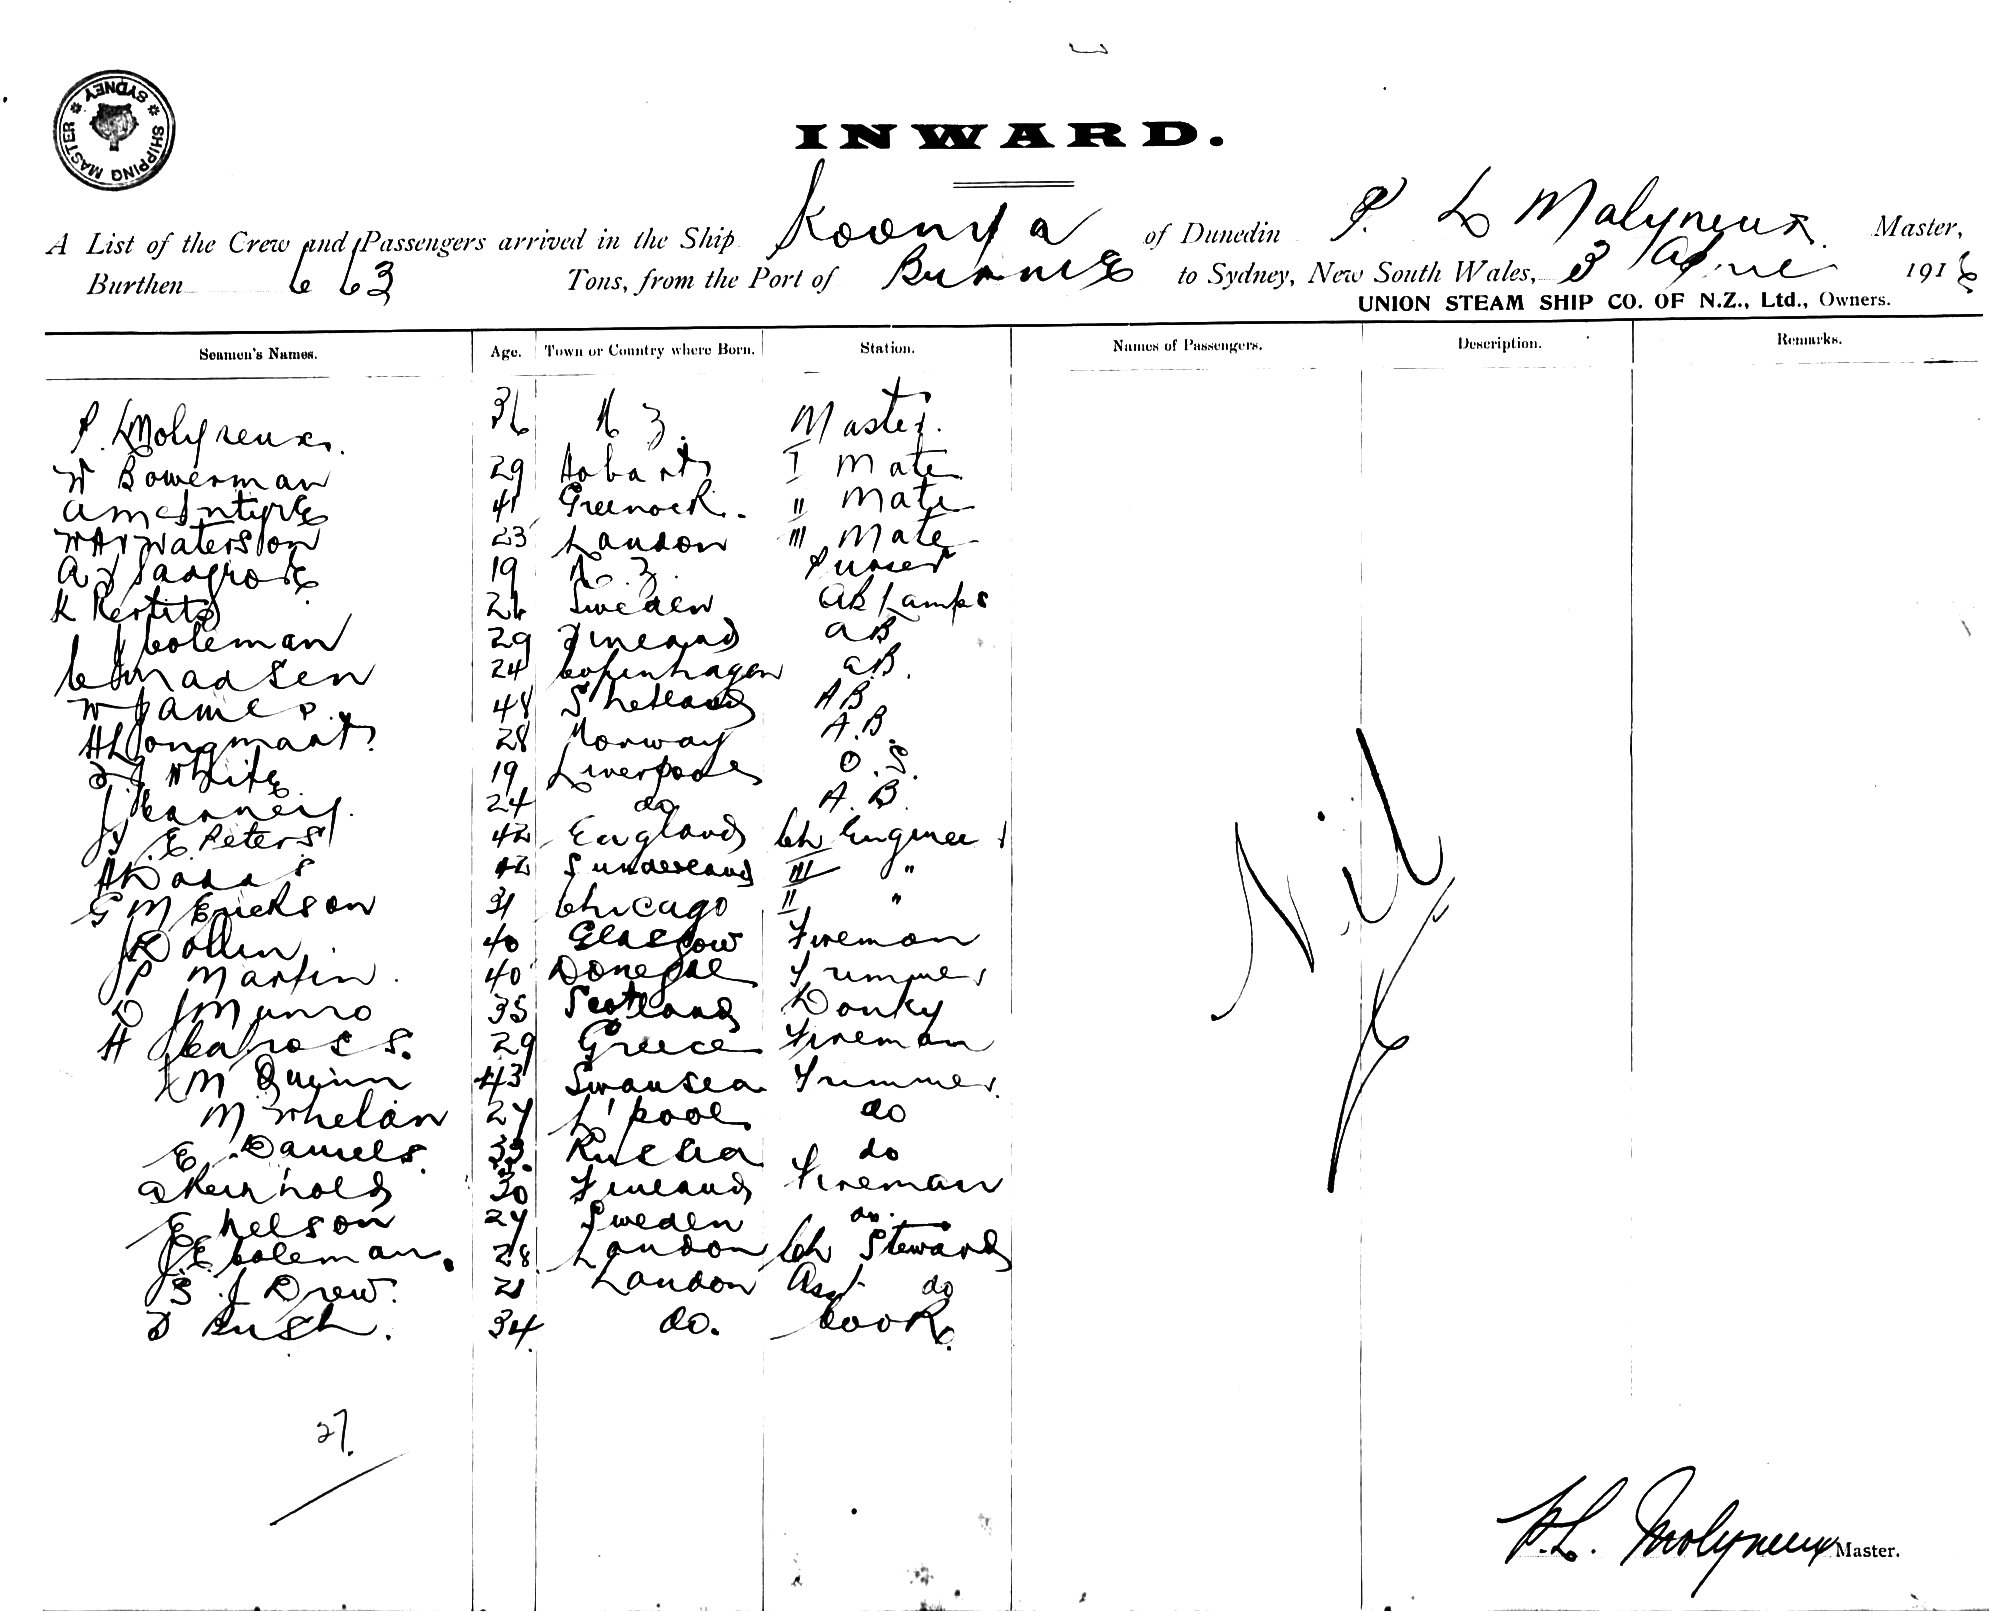 SHIPPING MASTER SYDNEY
INWARD.
A List of the Crew and Passengers arrived in the Ship Koonya of Dunedin P. L Molyneux. Master,
Burthen 663 Tons, from the Port of Burnie to Sydney, New South Wales, 3 April 1916
UNION STEAM SHIP CO. OF N.Z., Ltd., Owners.
Seamen's Names. Age. Town or Country where Born. Station. Names of Passengers. Description. Remarks.
P. L Molyneux. 36 N Z. Master.
W Bowerman 29 Hobart I Mate
A McIntyre 41 Greenock. II Mate
Waterson 23 London III Mate
A 19 N. Z. Purser
K 26 Sweden AB Lamps
J Coleman 29 Finland AB
C Madsen 24 Copenhagen AB.
W James. 48 Shetland AB
H Longmart. 28 Norway A.B.
White 19 Liverpool O.S.
J Carney. 24 do A.B.
E. Peters 42 England Ch Engineer
A Dodds 42 Sunderland III "
G M Erickson 31 Chicago II "
J Dollin. 40 Glasgow Fireman
P Martin. 40 Donegal Trimmer
D Munro 35 Scotland Donky
H 29 Greece Fireman
M Quinn 43 Swansea Trimmer.
M Whelan 27 L'pool do
E Daniels. 33. Russia do
A Reinhold 30 Finland Fireman
E Nelson 27 Sweden do.
J E Coleman. 28 London Ch Steward
S. J Drew. 21 London Asst do
Bush. 34. do. Cook.
Nil
27.
P.L. Molyneux Master.